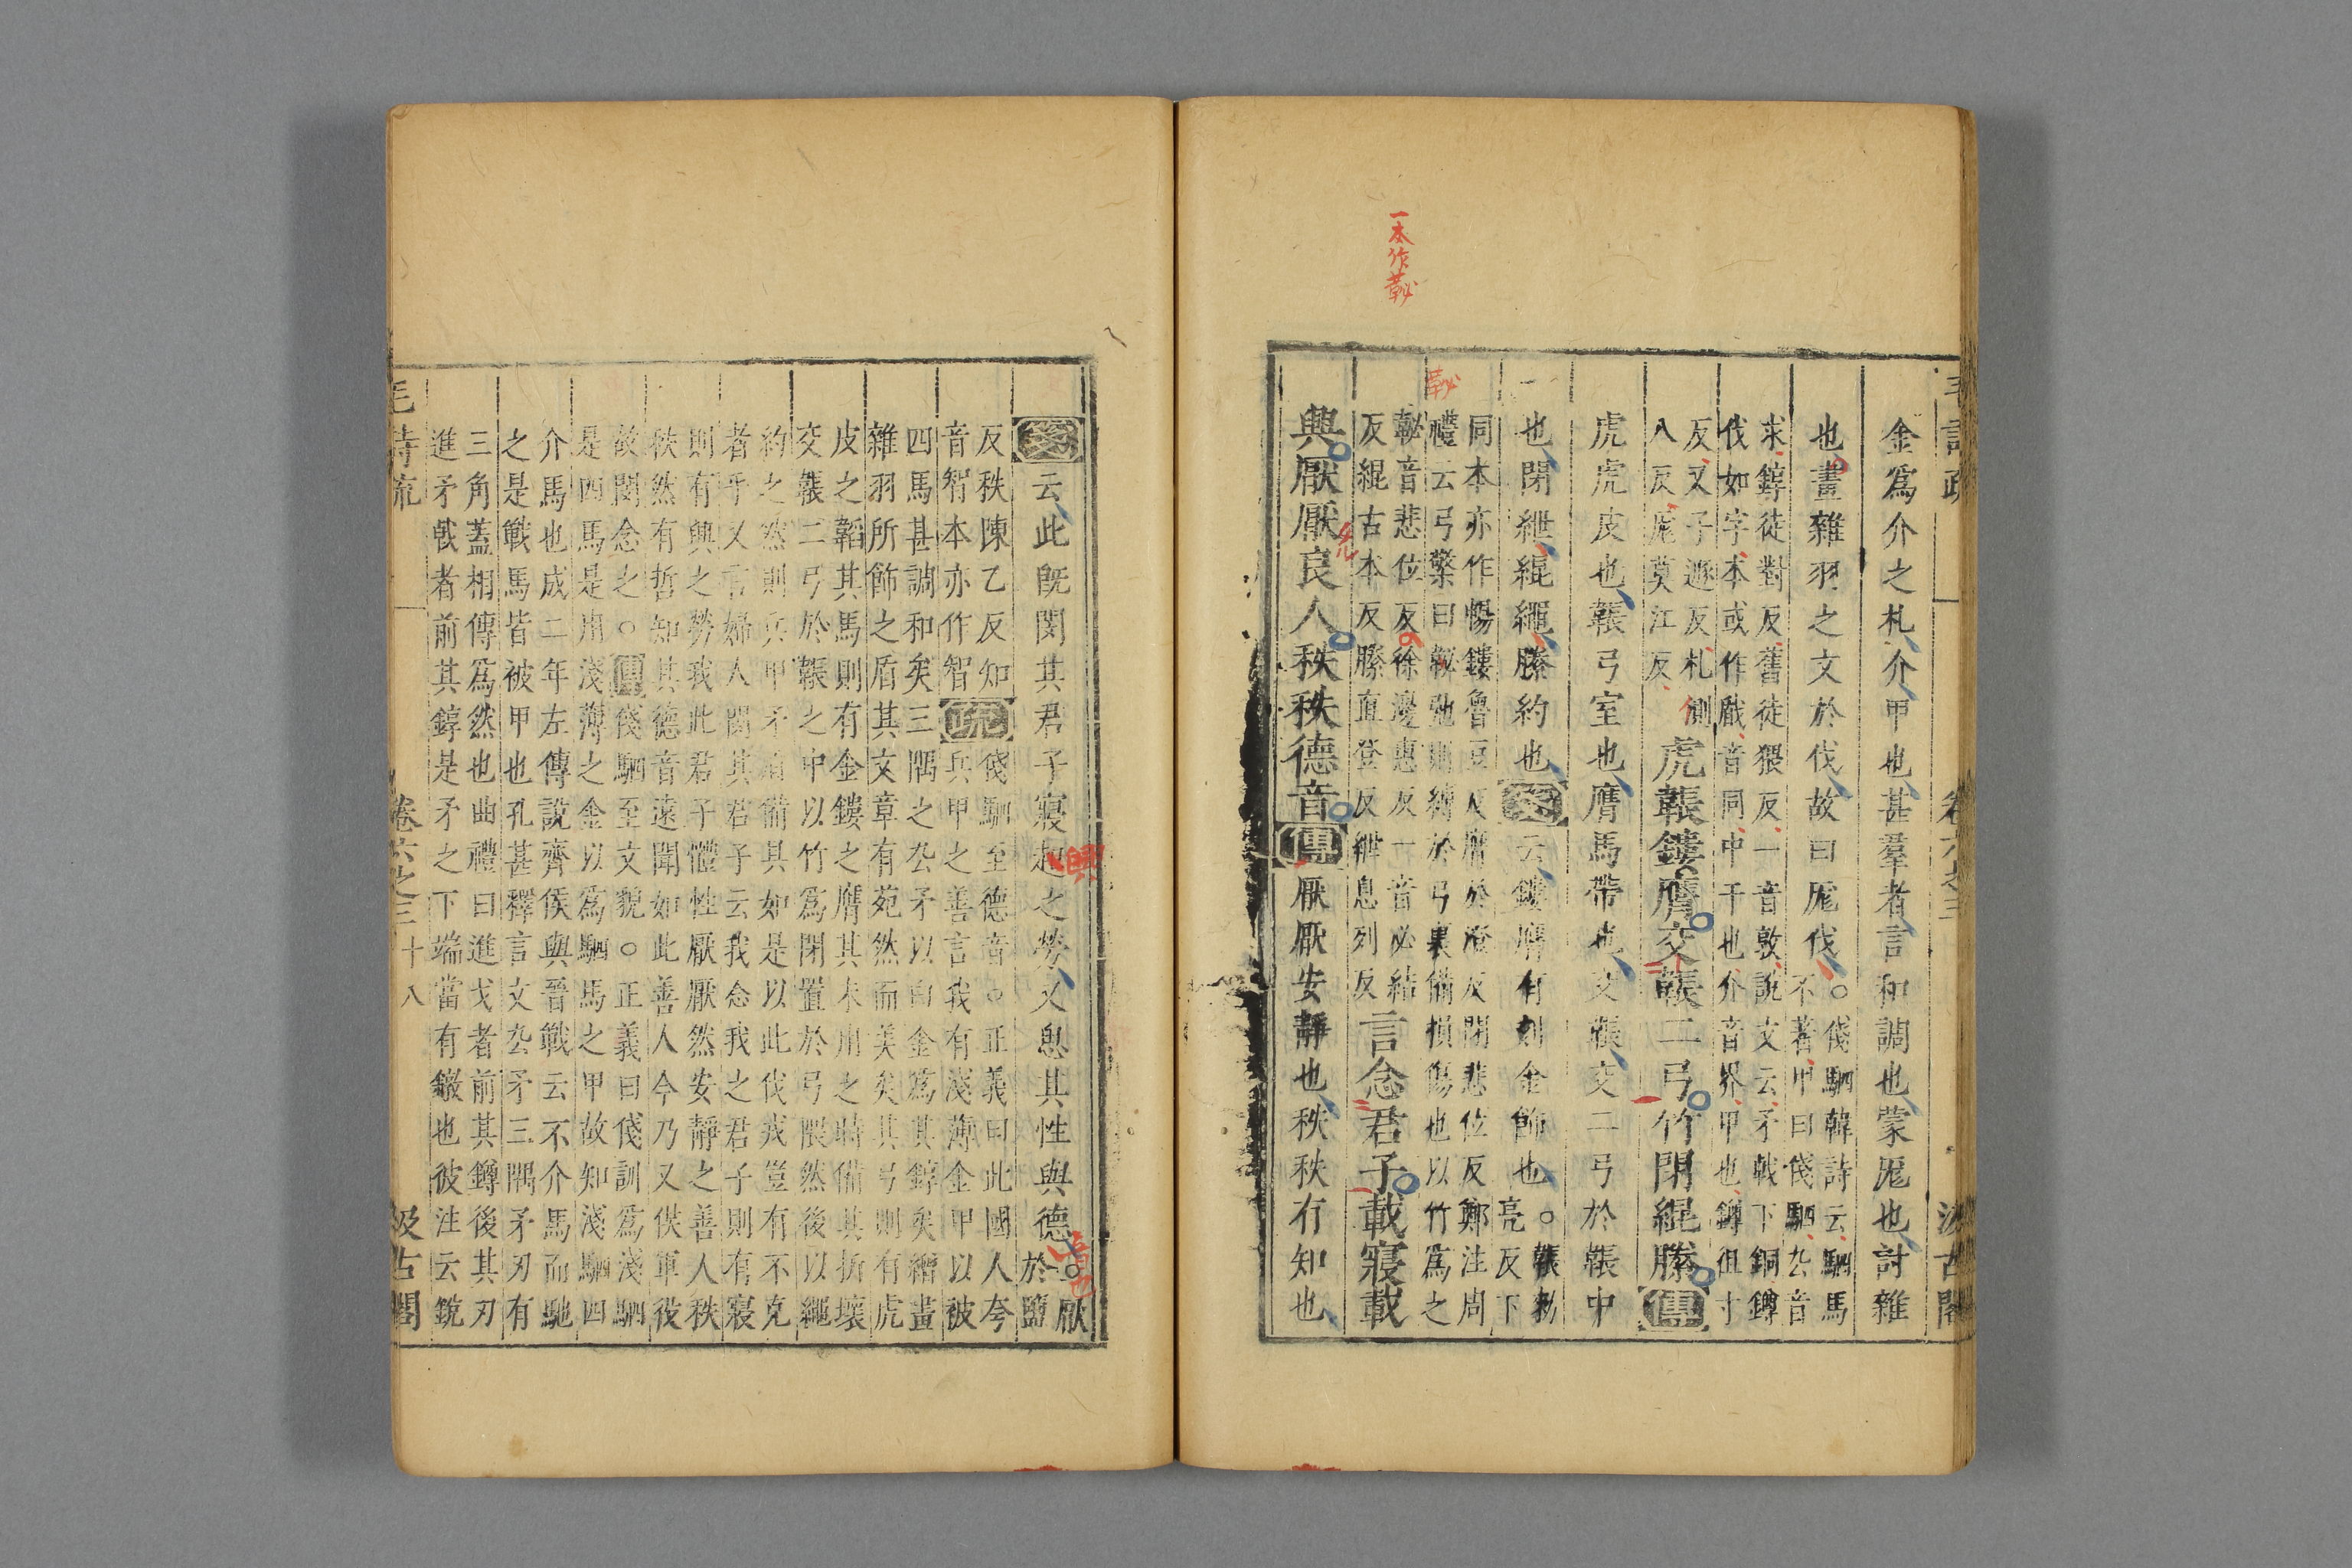 一本作䩛
金爲介之札介甲也甚羣者言和調也蒙厖也討雜
也畫雜羽之文於伐故曰厖伐○俴駟韓詩云駟馬
不著甲曰俴駟厹音
求錞徒對反舊徒猥反一音敦說文云矛戟下銅鐏
伐如字本或作戲音同中干也介音界甲也鐏徂寸
反又子遜反札側
八反厖莫江反
虎韔鏤膺交韔二弓竹閉緄縢傳
虎虎皮也韔弓室也膺馬帶也交韔交二弓於韔中
也閉紲緄繩縢約也箋云鏤膺有刻金飾也○韔勑
亮反下
同本亦作暢鏤魯豆反膺於澄反閉悲位反鄭注周
禮云弓檠曰䩛弛則縛於弓裏備損傷也以竹爲之
䩛音悲位反徐邊惠反一音必結
反緄古本反縢直登反紲息列反
言念君子載寢載
興厭厭良人秩秩德音傳厭厭安靜也秩秩有知也
毛詩疏
卷六之三
汲古閣
箋云此既閔其君子寢起之勞又思其性與德○厭
於鹽
反秩陳乙反知
音智本亦作智
疏
俴駟至德音○正義曰此國人夸
兵甲之善言我有淺薄金甲以被
四馬甚調和矣三隅之厹矛以白金爲其錞矣繪畫
雜羽所飾之盾其文章有苑然而美矣其弓則有虎
皮之韜其馬則有金鏤之膺其未用之時備其折壞
交韔二弓於韔之中以竹爲閉置於弓隈然後以繩
約之然則兵甲矛盾備具如是以此伐戎豈有不克
者乎又言婦人閔其君子云我念我之君子則有寢
則有興之勞我此君子體性厭厭然安靜之善人秩
秩然有哲知其德音遠聞如此善人今乃又供軍役
故閔念之○傳俴駟至文貌○正義曰俴訓爲淺駟
是四馬是用淺薄之金以爲駟馬之甲故知淺駟四
介馬也成二年左傳說齊侯與晉戰云不介馬而馳
之是戰馬皆被甲也孔甚釋言文厹矛三隅矛刃有
三角蓋相傳爲然也曲禮曰進戈者前其鐏後其刃
進矛戟者前其錞是矛之下端當有鐓也彼注云銳
毛詩疏
卷六之三
十八
汲古閣